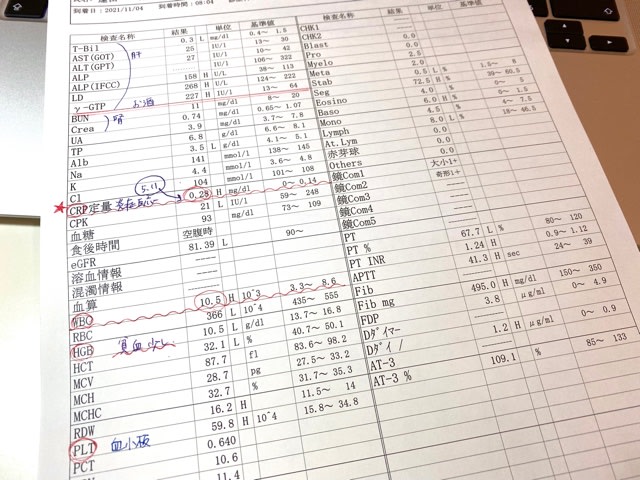 到着日：2021/11/04 到着時間：08:04
検査名称 結果 単位 基準値
T-Bil 0.3 L mg/dl 0.4～ 1.5
AST(GOT) 25 IU/l 13～ 30
ALT(GPT) 27 IU/l 10～ 42
ALP ----- IU/l 106～ 322
ALP(IFCC) 158 H U/L 38～ 113
LD 268 H U/L 124～ 222
γ-GTP 227 H IU/l 13～ 64
BUN 11 mg/dl 8～ 20
Crea 0.74 mg/dl 0.65～ 1.07
UA 3.9 mg/dl 3.7～ 7.8
TP 6.8 g/dl 6.6～ 8.1
Alb 3.5 L g/dl 4.1～ 5.1
Na 141 mmol/l 138～ 145
K 4.4 mmol/l 3.6～ 4.8
Cl 104 mmol/l 101～ 108
CRP定量 0.28 H mg/dl 0～ 0.14
CPK 21 L IU/l 59～ 248
血糖 93 mg/dl 73～ 109
食後時間 空腹時
eGFR 81.39 L 90～
溶血情報 -----
混濁情報 -----
血算 -----
WBC 10.5 H 10^3 3.3～ 8.6
RBC 366 L 10^4 435～ 555
HGB 10.5 L g/dl 13.7～ 16.8
HCT 32.1 L % 40.7～ 50.1
MCV 87.7 fl 83.6～ 98.2
MCH 28.7 pg 27.5～ 33.2
MCHC 32.7 % 31.7～ 35.3
RDW 16.2 H 11.5～ 14
PLT 59.8 H 10^4 15.8～ 34.8
PCT 0.640
10.6
11.4
肝
お酒
腎
5.11
★
炎症反応
貧血少し
血小板
検査名称 結果 単位 基準値
CHK1
CHK2
Blast 0.0
Pro 0.0
Myelo 2.5
Meta 2.0
Stab 0.5 L % 1.5～ 6
Seg 72.5 H % 39～ 60.5
Eosino
Baso
Mono
Lymph
At.Lym
赤芽球
Others
鏡Com1 大小1+
鏡Com2 奇形1+
鏡Com3 -----
鏡Com4 -----
鏡Com5 -----
PT
PT % 67.7 L % 80～ 120
PT INR 1.24 H 0.9～ 1.12
APTT 41.3 H sec 24～ 39
Fib
Fib mg 495.0 H mg/dl 150～ 350
FDP 3.8 μg/ml 0～ 4.9
Dダイマー
Dダイ / 1.2 H μg/ml 0～ 0.9
AT-3
AT-3 % 109.1 % 85～ 133